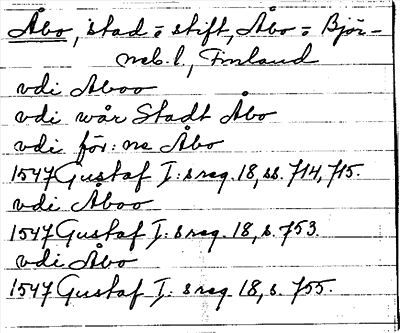 Åbo, stad = stift, Åbo = Björ-
neb. l., Finland
vdi Aboo
vdi wår Stadt Åbo
vdi för: ne Åbo
1547 Gustaf I: s reg. 18, ss. 714, 715.
vdi Åboo
1547 Gustaf I: s reg. 18, s. 753.
vdi Åbo
1547 Gustaf I: s reg. 18, s. 755.